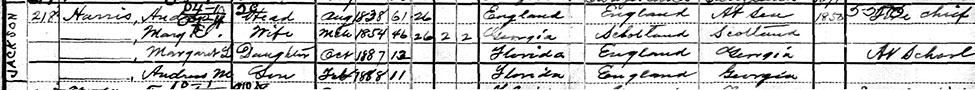 JACKSON
218 Harris, Head Aug 1838 61 26 England England At Sea 1850 chief
Mary Wife Mch 1854 46 26 2 2 Georgia Schotland Scotland
Margaret L Daughter Oct 1887 12 Florida England Georgia At School
Andrew M Son Feb 1888 11 Florida England Georgia